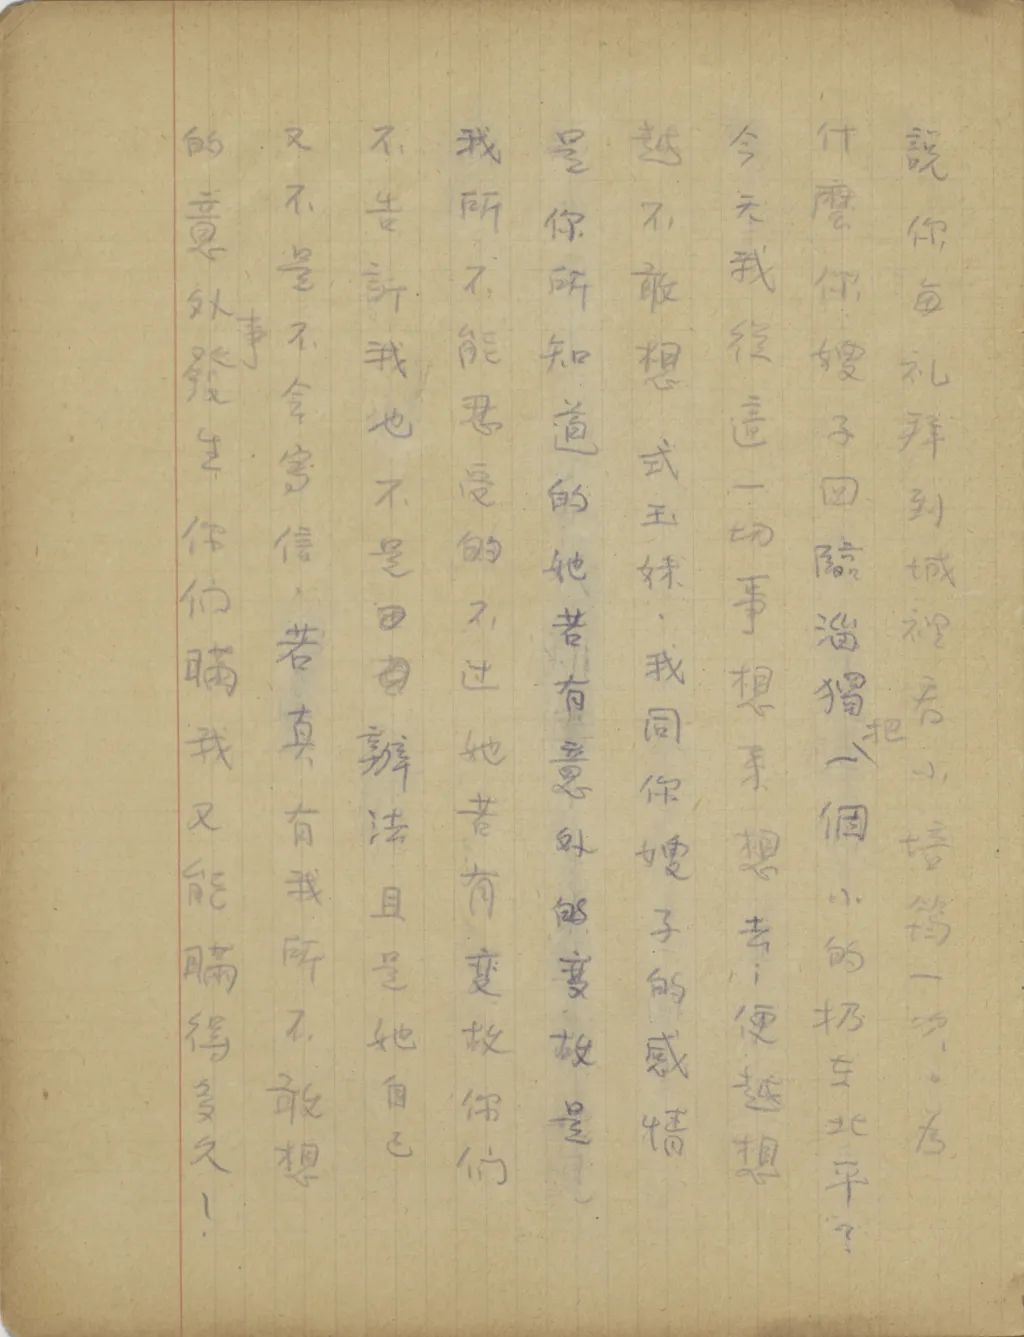 說你每礼拜到城裡看小培筠一次。為
什麼你嫂子回臨淄獨把一個小的扔在北平？
今天我從這一切事想來想去；便越想
越不敢想 式玉妹．我同你嫂子的感情
是你所知道的她若有意外的變故是
我所不能忍受的不过她若有變故你们
不告訴我也不是由由辦法且是她自己
又不是不會寫信．若真有我所不敢想
的意外事發生 你们瞞我又能瞞得多久！